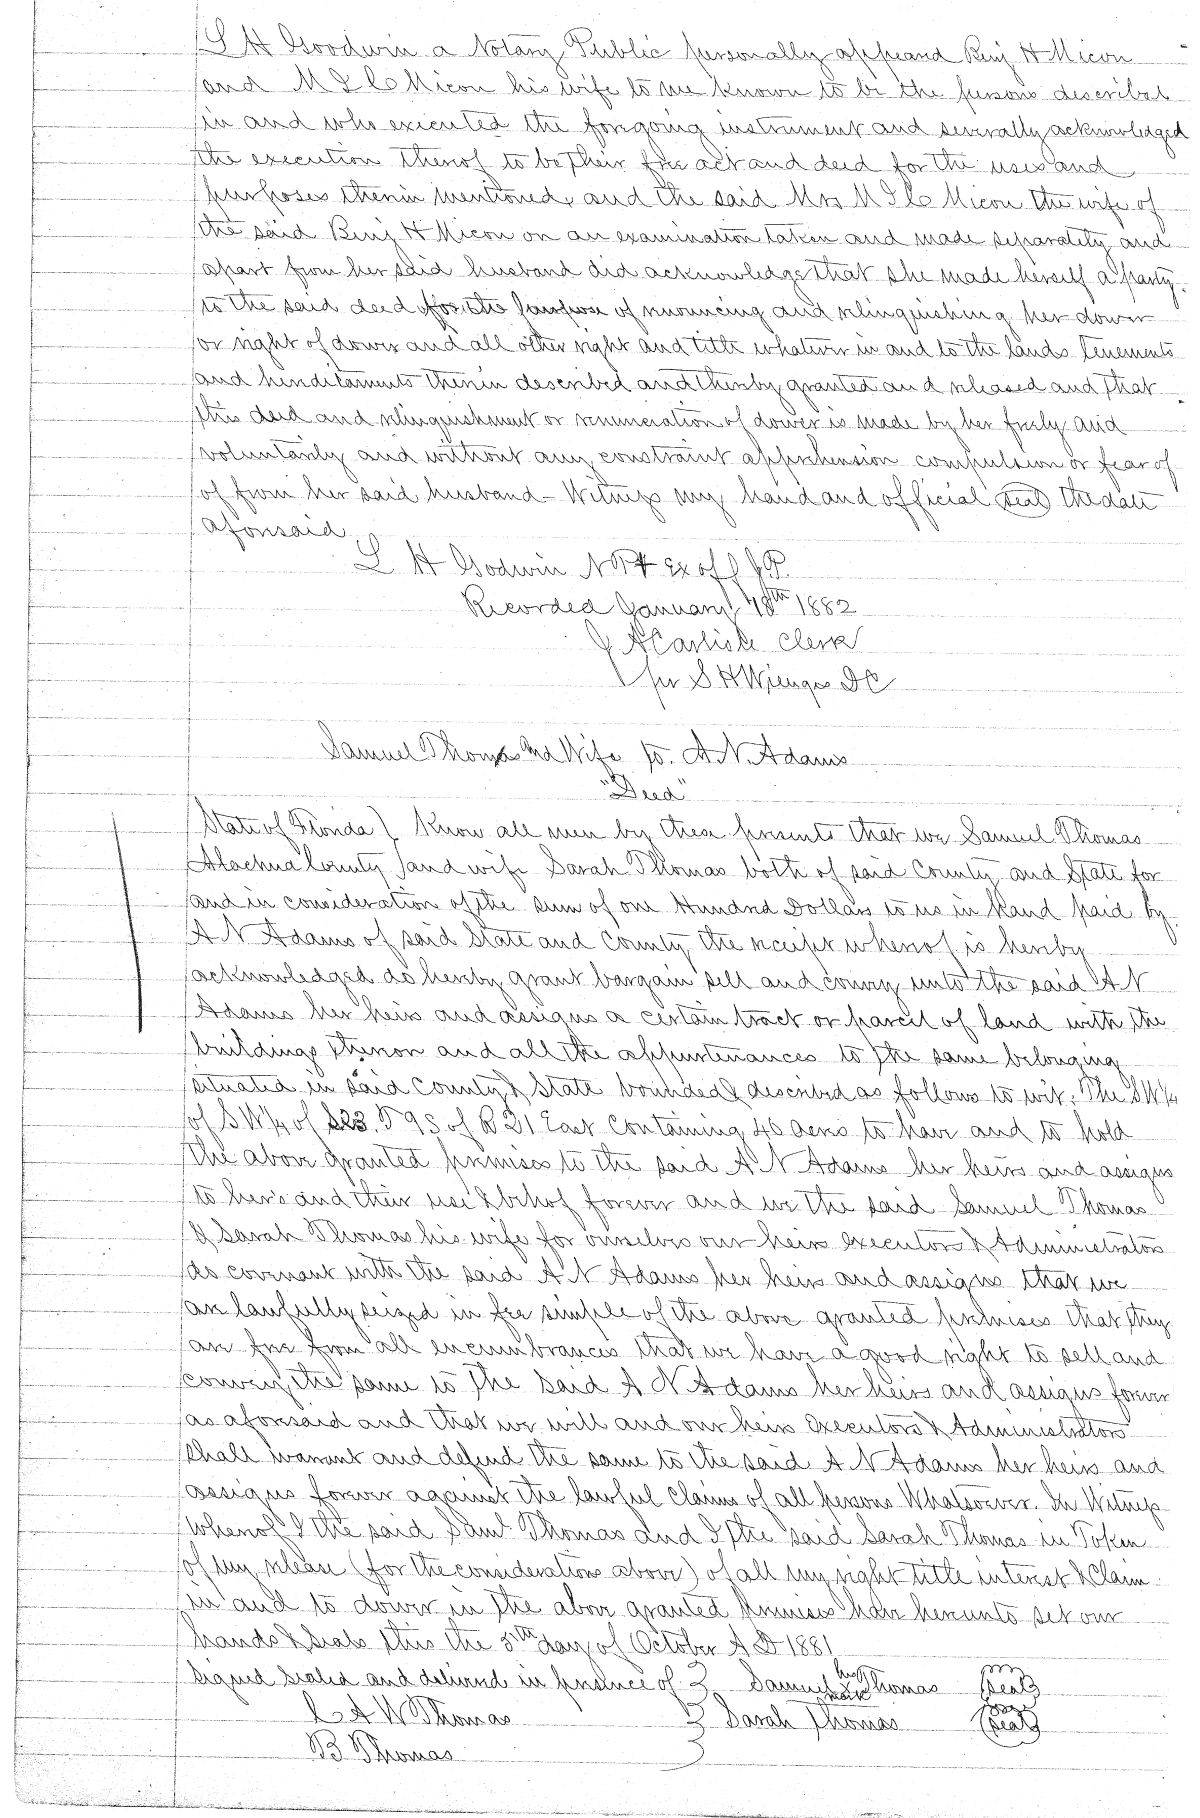 L H Goodwin a Notary Public personally appeard Benj H Micou
and M & C Micou his wife to me known to be the persons described
in and who executed the foregoing instrument and severally acknowledged
the execution thereof to be their free act and deed for the uses and
purposes therein mentioned, and the said Mrs M & C Micou the wife of
the said Benj H Micou on an examination taken and made separately and
apart from her said husband did acknowledge that she made herself a party
to the said deed for the purpose of renouncing and relinquishing her dower
or right of dower and all other right and title whatever in and to the lands tenements
and hereditaments therein described and thereby granted and released and that
this deed and relinquishment or renunceration of dower is made by her freely and
voluntarily and without any constraint apprehension compulsion or fear of
of from her said husband - Witness my hand and official seal the date
aforesaid
L H Godwin N P & Ex off J.P.
Recorded January 18th 1882
J A Carlisle Clerk
per S H Wienges D C
Samuel Thomas and Wife to. A. N. Adams
"Deed"
State of Florida } Know all men by these presents that we Samuel Thomas
Alachua County } and wife Sarah Thomas both of said County and State for
and in consideration of the sum of one Hundred Dollars to us in hand paid by
A N Adams of said State and County the receipt whereof is hereby
acknowledged do hereby grant bargain sell and convey unto the said A N
Adams her heirs and assigns a certain tract or parcel of land with the
buildings thereon and all the appurtenances to the same belonging
situated in said County & State bounded & described as follows to wit: The SW 1/4
of SW 1/4 of S23. T 9S of R 21 East Containing 40 acres to have and to hold
the above granted premises to the said A N Adams her heirs and assigns
to hers and their use & behof forever and we the said Samuel Thomas
& Sarah Thomas his wife for ourselves our heirs executors & Administrators
do covenant with the said A N Adams her heirs and assigns that we
are lawfully seized in fee simple of the above granted premises that they
are free from all encumbrances that we have a good right to sell and
convey the same to the said A N Adams her heirs and assigns forever
as aforesaid and that we will and our heirs Executors & Administrators
shall warrent and defend the same to the said A N Adams her heirs and
assigns forever against the lawful claims of all persons Whatsoever. In Witness
whereof I the said Saml Thomas and I the said Sarah Thomas in Token
of my release (for the considerations above) of all my right title interest & Claim
in and to dower in the above granted premises have hereunto set our
hands & seals this the 5th day of October A D 1881
signed sealed and delivered in presence of } Samuel his x mark Thomas (seal)
L A W Thomas } Sarah Thomas (seal)
B Thomas }